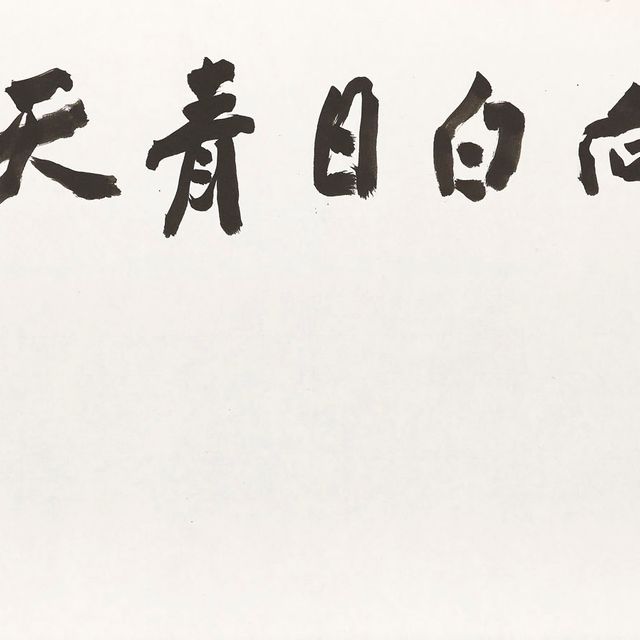 白日青天